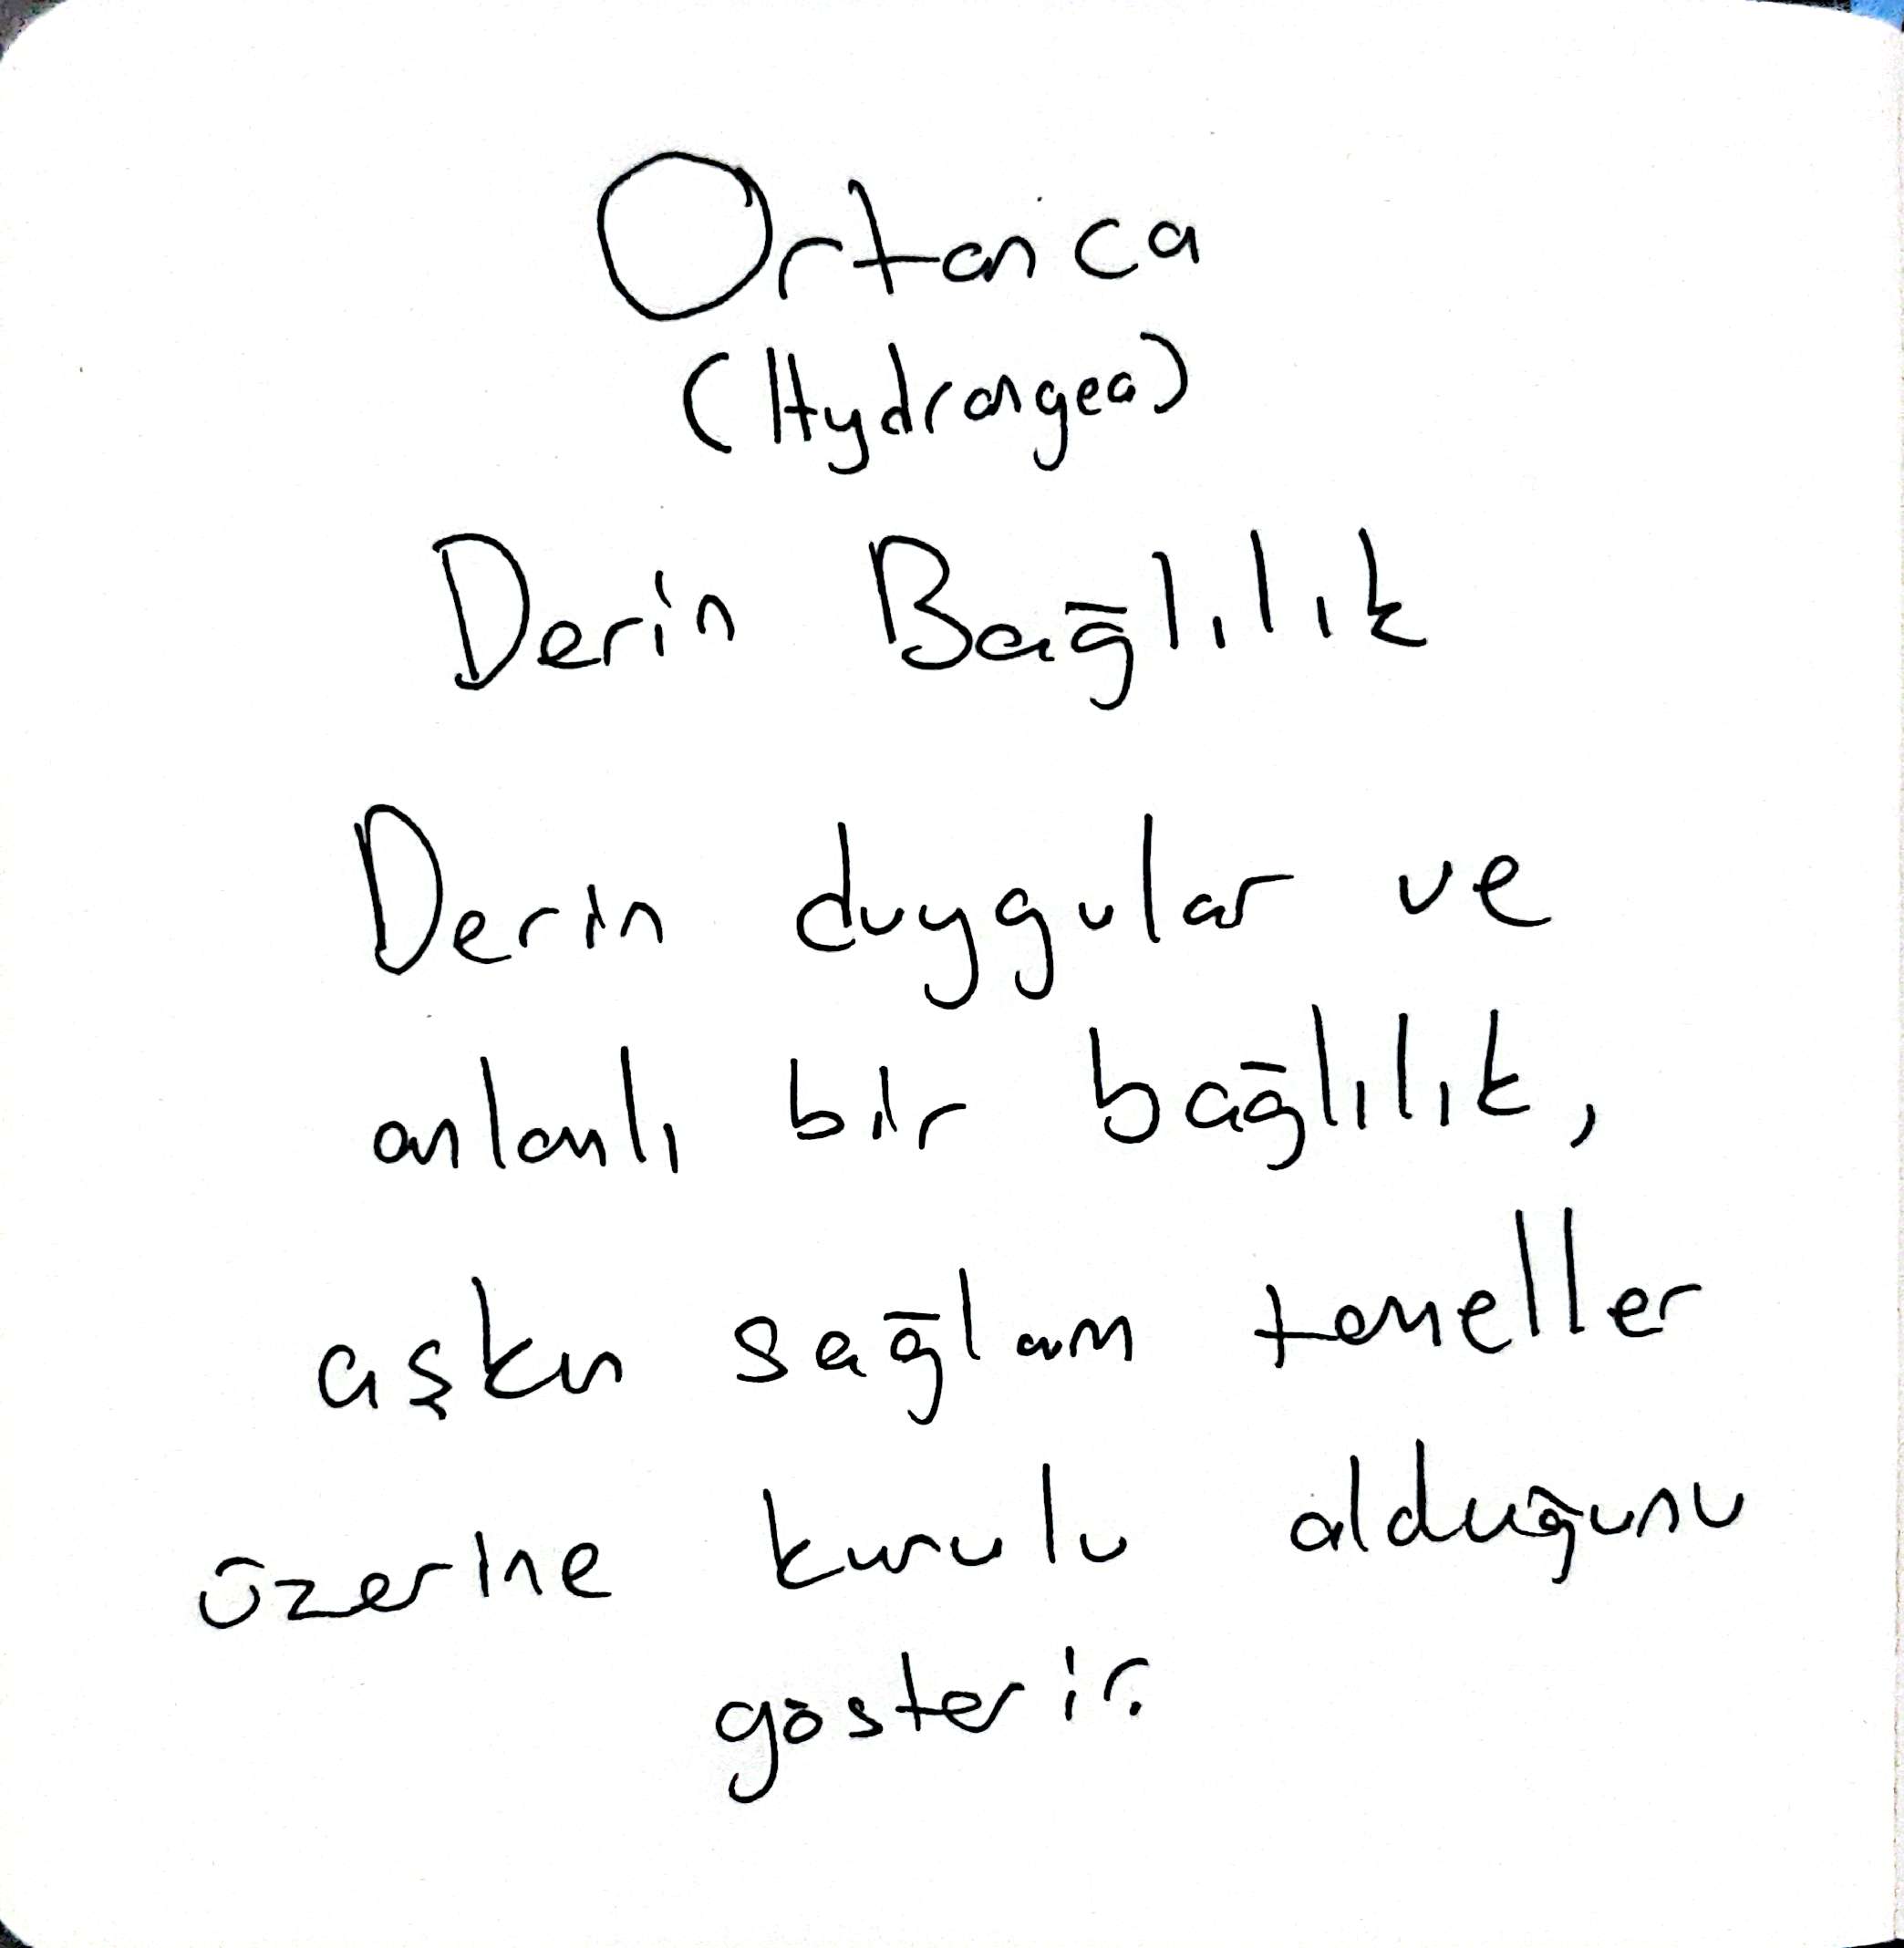 Ortanca
(Hydrangea)
Derin Bağlılık
Derin duygular ve
anlamlı bir bağlılık,
aşkın sağlam temeller
üzerine kurulu olduğunu
gösterir.